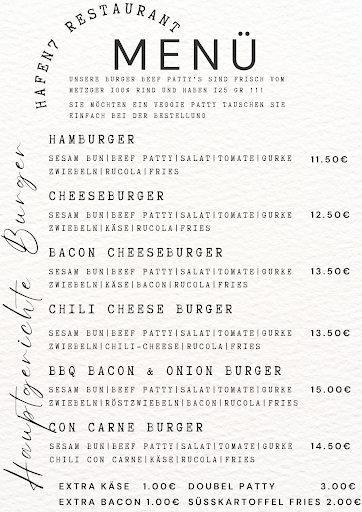 HAFEN7 RESTAURANT
MENÜ
UNSERE BURGER BEEF PATTY'S SIND FRISCH VOM
METZGER 100% RIND UND HABEN 125 GR !!!
SIE MÖCHTEN EIN VEGGIE PATTY TAUSCHEN SIE
EINFACH BEI DER BESTELLUNG
Hauptgerichte Burger
HAMBURGER
SESAM BUN|BEEF PATTY|SALAT|TOMATE|GURKE 11.50€
ZWIEBELN|RUCOLA|FRIES
CHEESEBURGER
SESAM BUN|BEEF PATTY|SALAT|TOMATE|GURKE 12.50€
ZWIEBELN|KÄSE|RUCOLA|FRIES
BACON CHEESEBURGER
SESAM BUN|BEEF PATTY|SALAT|TOMATE|GURKE 13.50€
ZWIEBELN|KÄSE|BACON|RUCOLA|FRIES
CHILI CHEESE BURGER
SESAM BUN|BEEF PATTY|SALAT|TOMATE|GURKE 13.50€
ZWIEBELN|CHILI-CHEESE|RUCOLA|FRIES
BBQ BACON & ONION BURGER
SESAM BUN|BEEF PATTY|SALAT|TOMATE|GURKE 15.00€
ZWIEBELN|RÖSTZWIEBELN|BACON|RUCOLA|FRIES
CON CARNE BURGER
SESAM BUN|BEEF PATTY|SALAT|TOMATE|GURKE 14.50€
CHILI CON CARNE|KÄSE|RUCOLA|FRIES
EXTRA KÄSE 1.00€ DOUBEL PATTY 3.00€
EXTRA BACON 1.00€ SÜSSKARTOFFEL FRIES 2.00€